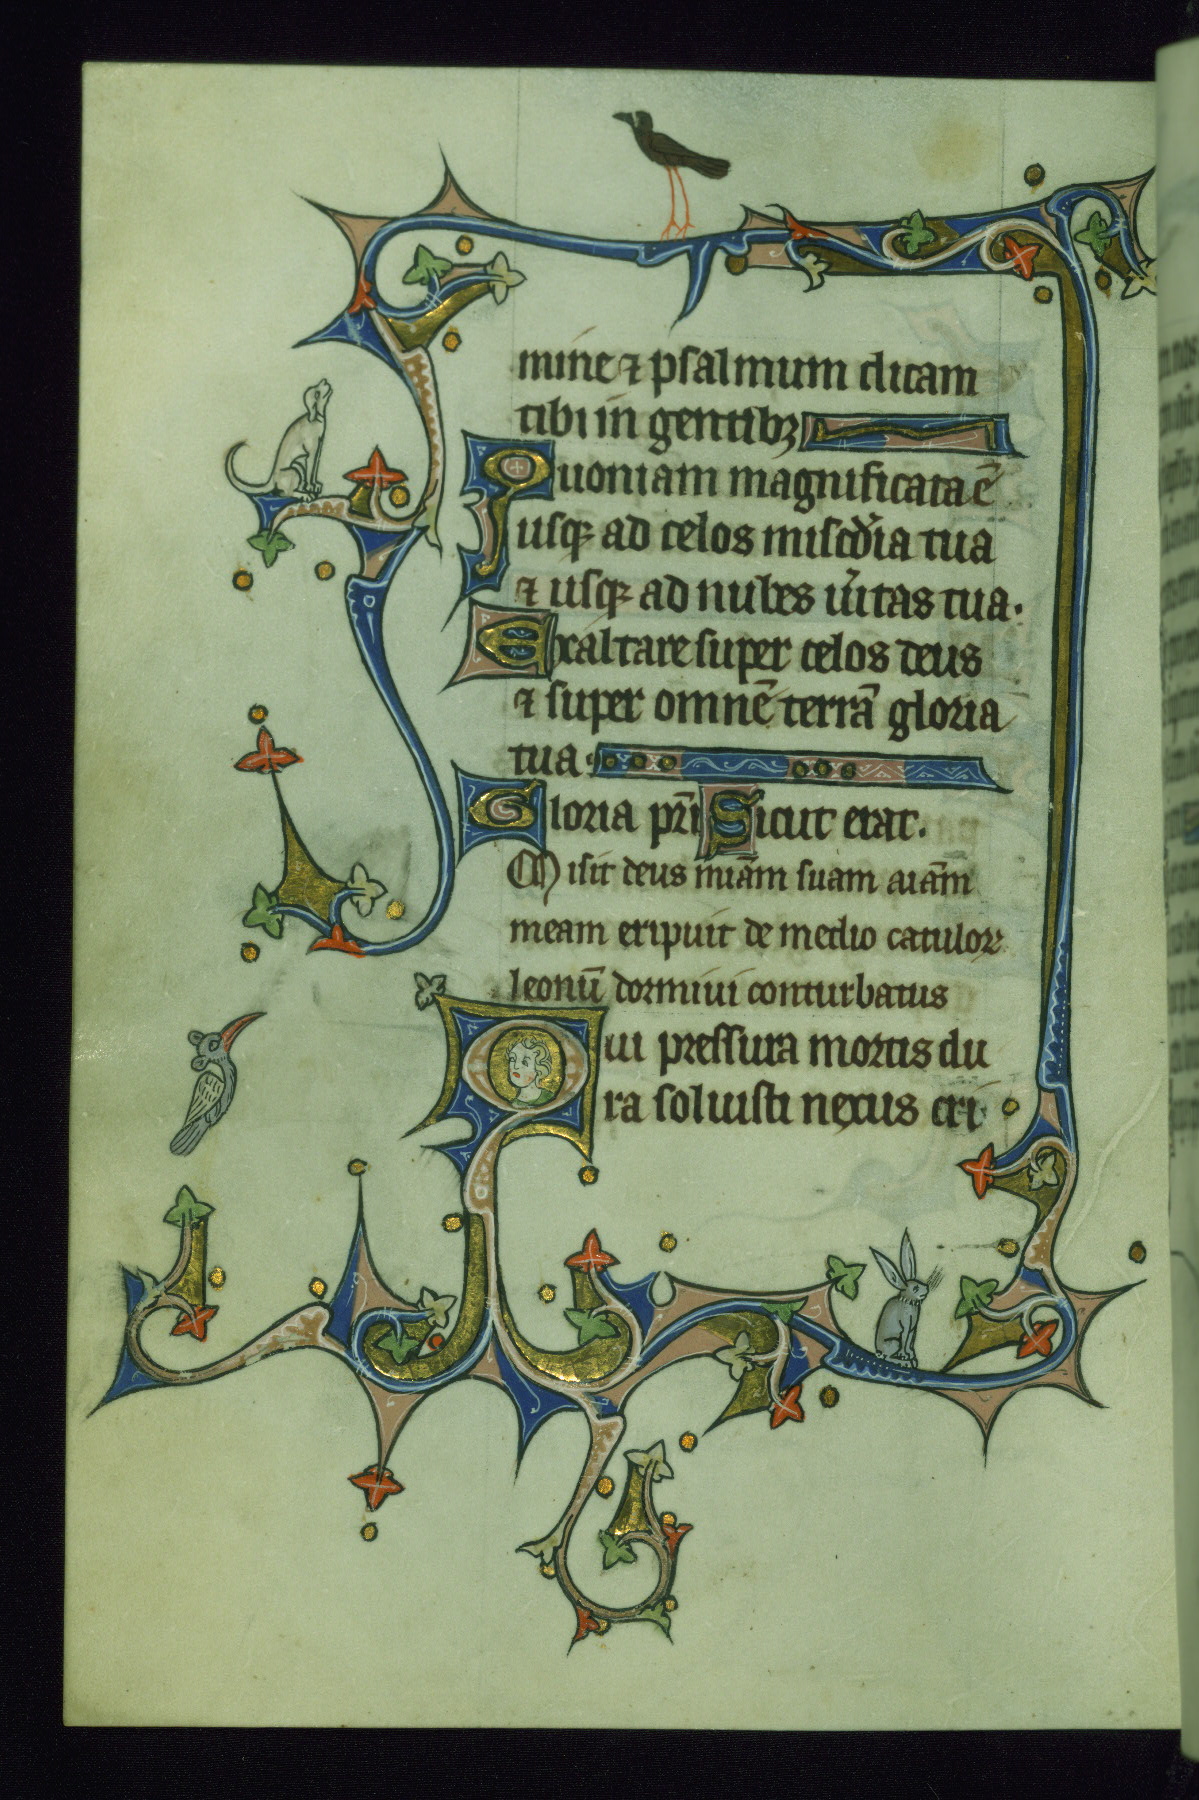 mine ⁊ psalmum dicam
tibi in gentibꝫ
Quoniam magnificata ē
usqꝫ ad celos misc̄dia tua
⁊ usqꝫ ad nubes ūitas tua.
Exaltare super celos deus
⁊ super omnē terrā gloria
tua.
Gloria pr̄i Sicut erat.
Misit deus miām suam aiām
meam eripuit de medio catuloꝝ
leonū dormiui conturbatus
Qui pressura mortis du
ra soluisti nexus cri